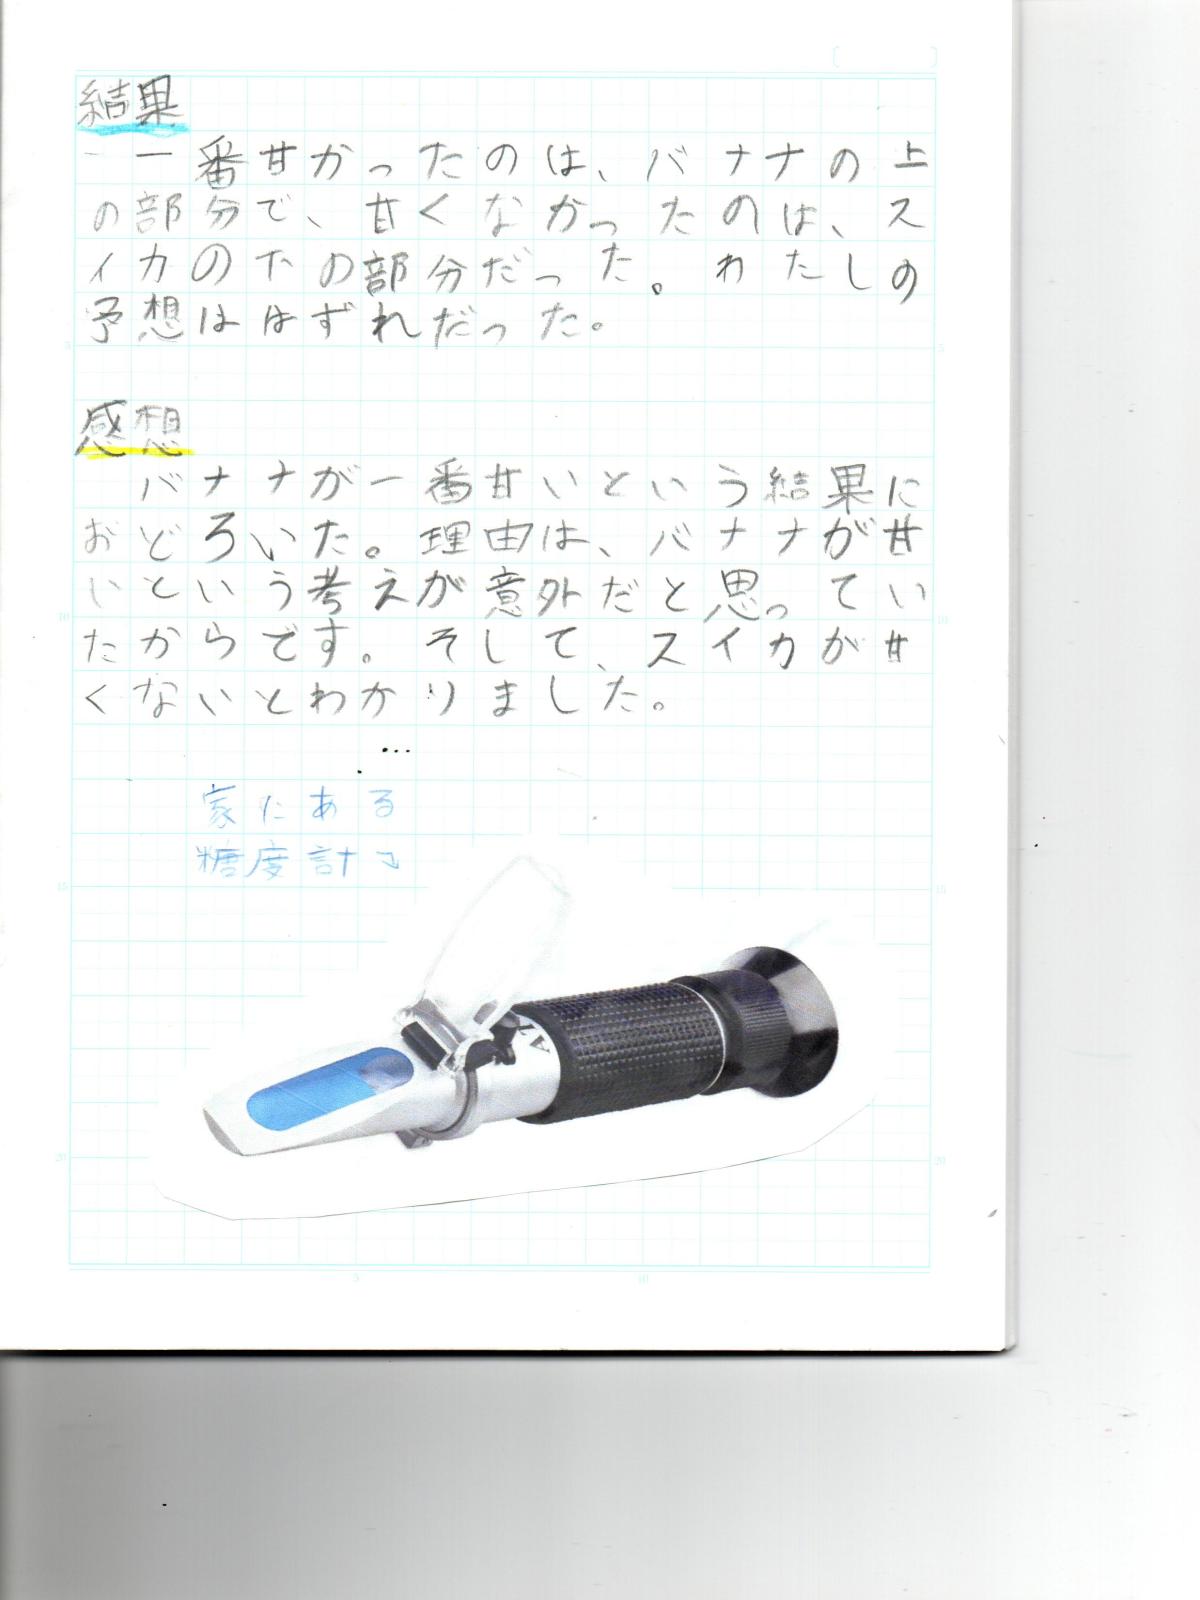 結果
一番甘かったのは、バナナの上
の部分で、甘くなかったのは、ス
イカの下の部分だった。わたしの
予想ははずれだった。
感想
バナナが一番甘いという結果に
おどろいた。理由は、バナナが甘
いという考えが意外だと思ってい
たからです。そして、スイカが甘
くないとわかりました。
家にある
糖度計
A7
5
10
15
20
5
10
15
20
5
10